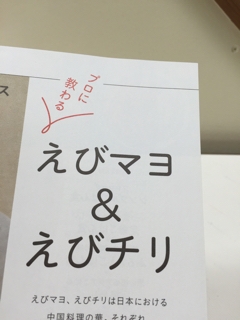 ス
プロに
教わる
えびマヨ
&
えびチリ
えびマヨ、えびチリは日本における
中国料理の華。それぞれ